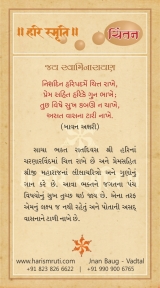 ॥ હરિ સ્મૃતિ ॥
ચિંતન
જય સ્વામિનારાયણ
નિશદિન હરિપદમેં ચિત્ત રાખે,
પ્રેમ સહિત હરિકે ગુન ભાખે;
તુછ વિષે સુખ કબહી ન ચાખે,
અસત વાસના ટારી નાખે.
સાચા ભક્ત રાતદિવસ શ્રી હરિનાં
ચરણારવિંદમાં ચિત્ત રાખે છે અને પ્રેમસહિત
શ્રીજી મહારાજનાં લીલાચરિત્રો અને ગુણોનું
ગાન કરે છે. આવા ભક્તને જગતનાં પંચ
વિષયોનું સુખ તુચ્છ થઇ જાય છે. એના તરફ
એમનું લક્ષ્ય જ નથી રહેતું અને પોતાની અસદ્
વાસનાને ટાળી નાખે છે.
www.harismruti.com
Jnan Baug - Vadtal
+91 823 826 6622
+91 990 900 6765